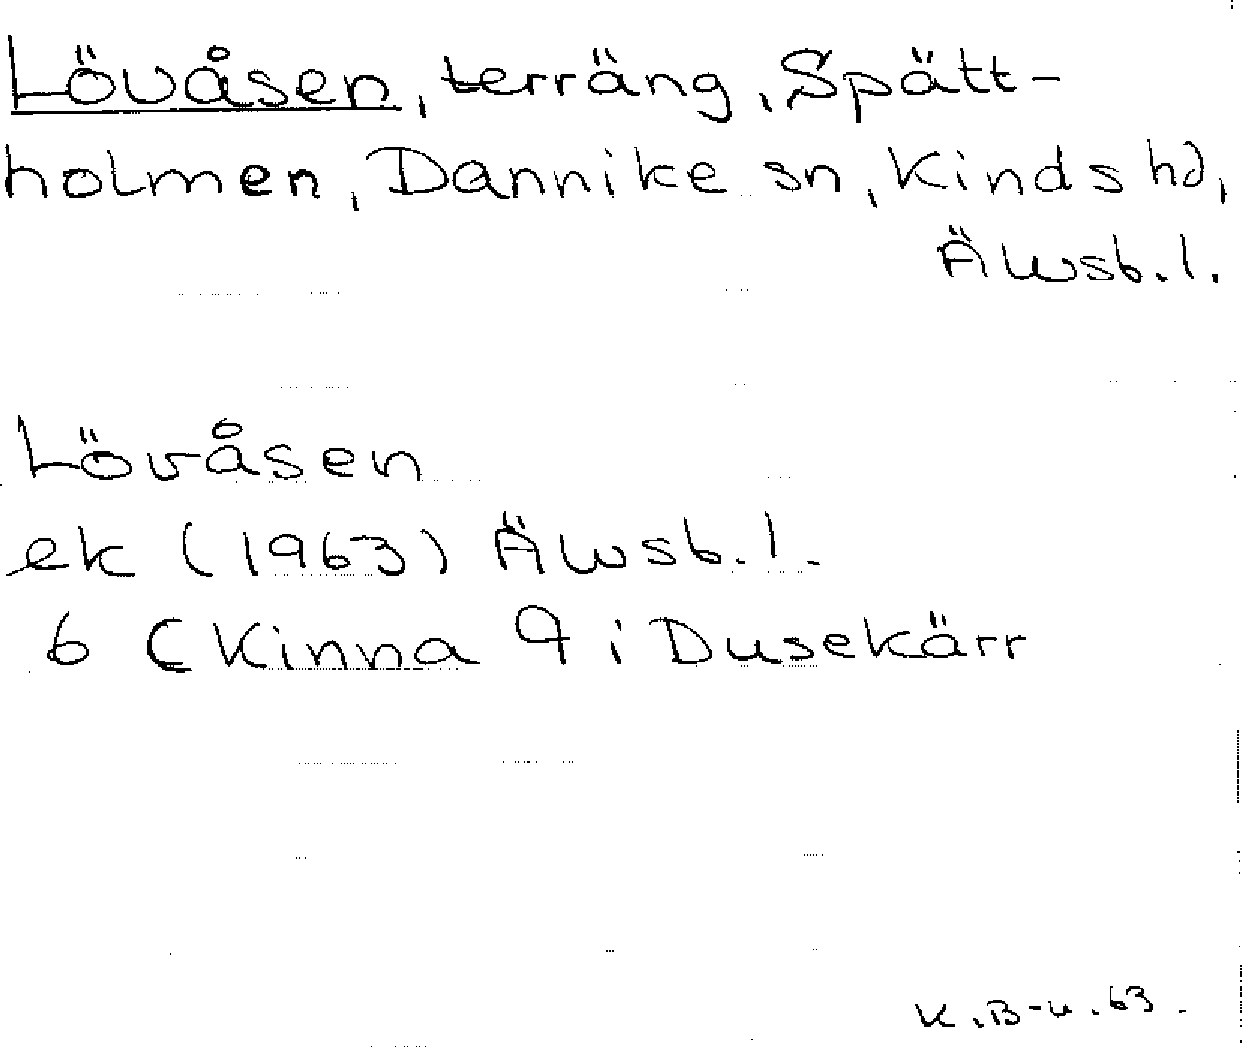 Lövåsen, terräng, Spätt-
holmen, Dannike sn, Kinds hd,
Älvsb.l.
Lövåsen
ek (1963) Älvsb.l.
6 C Kinna 9 i Dusekärr
K.B-u.63.